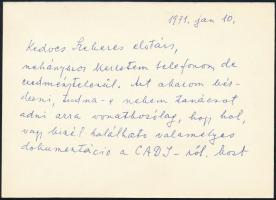 1971. jan 10.
Kedves Szekeres elvtárs,
néhányszor kerestem telefonon de
eredménytelenül. Azt akarom kér-
dezni, tudna-e nekem tanácsot
adni arra vonatkozólag, hogy hol,
vagy kinél található valamelyes
dokumentáció a CADJ-ról. Most